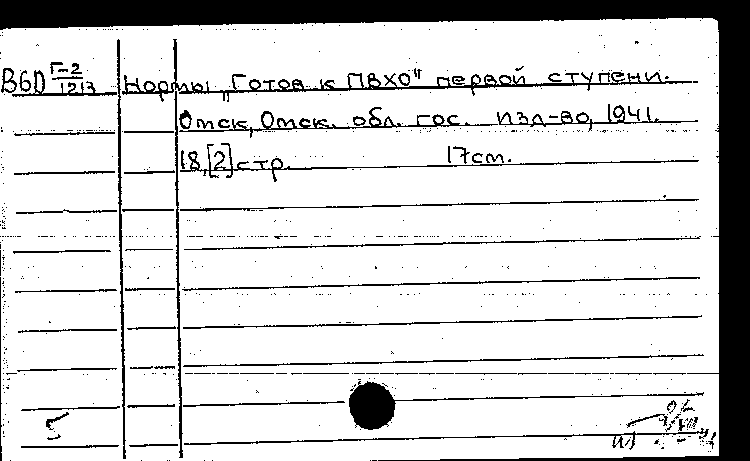 В60 Г-2/1213 Нормы „Готов к ПВХО" первой ступени.
Омск, Омск. обл. гос. изд-во, 1941.
18,[2]стр. 17см.
5